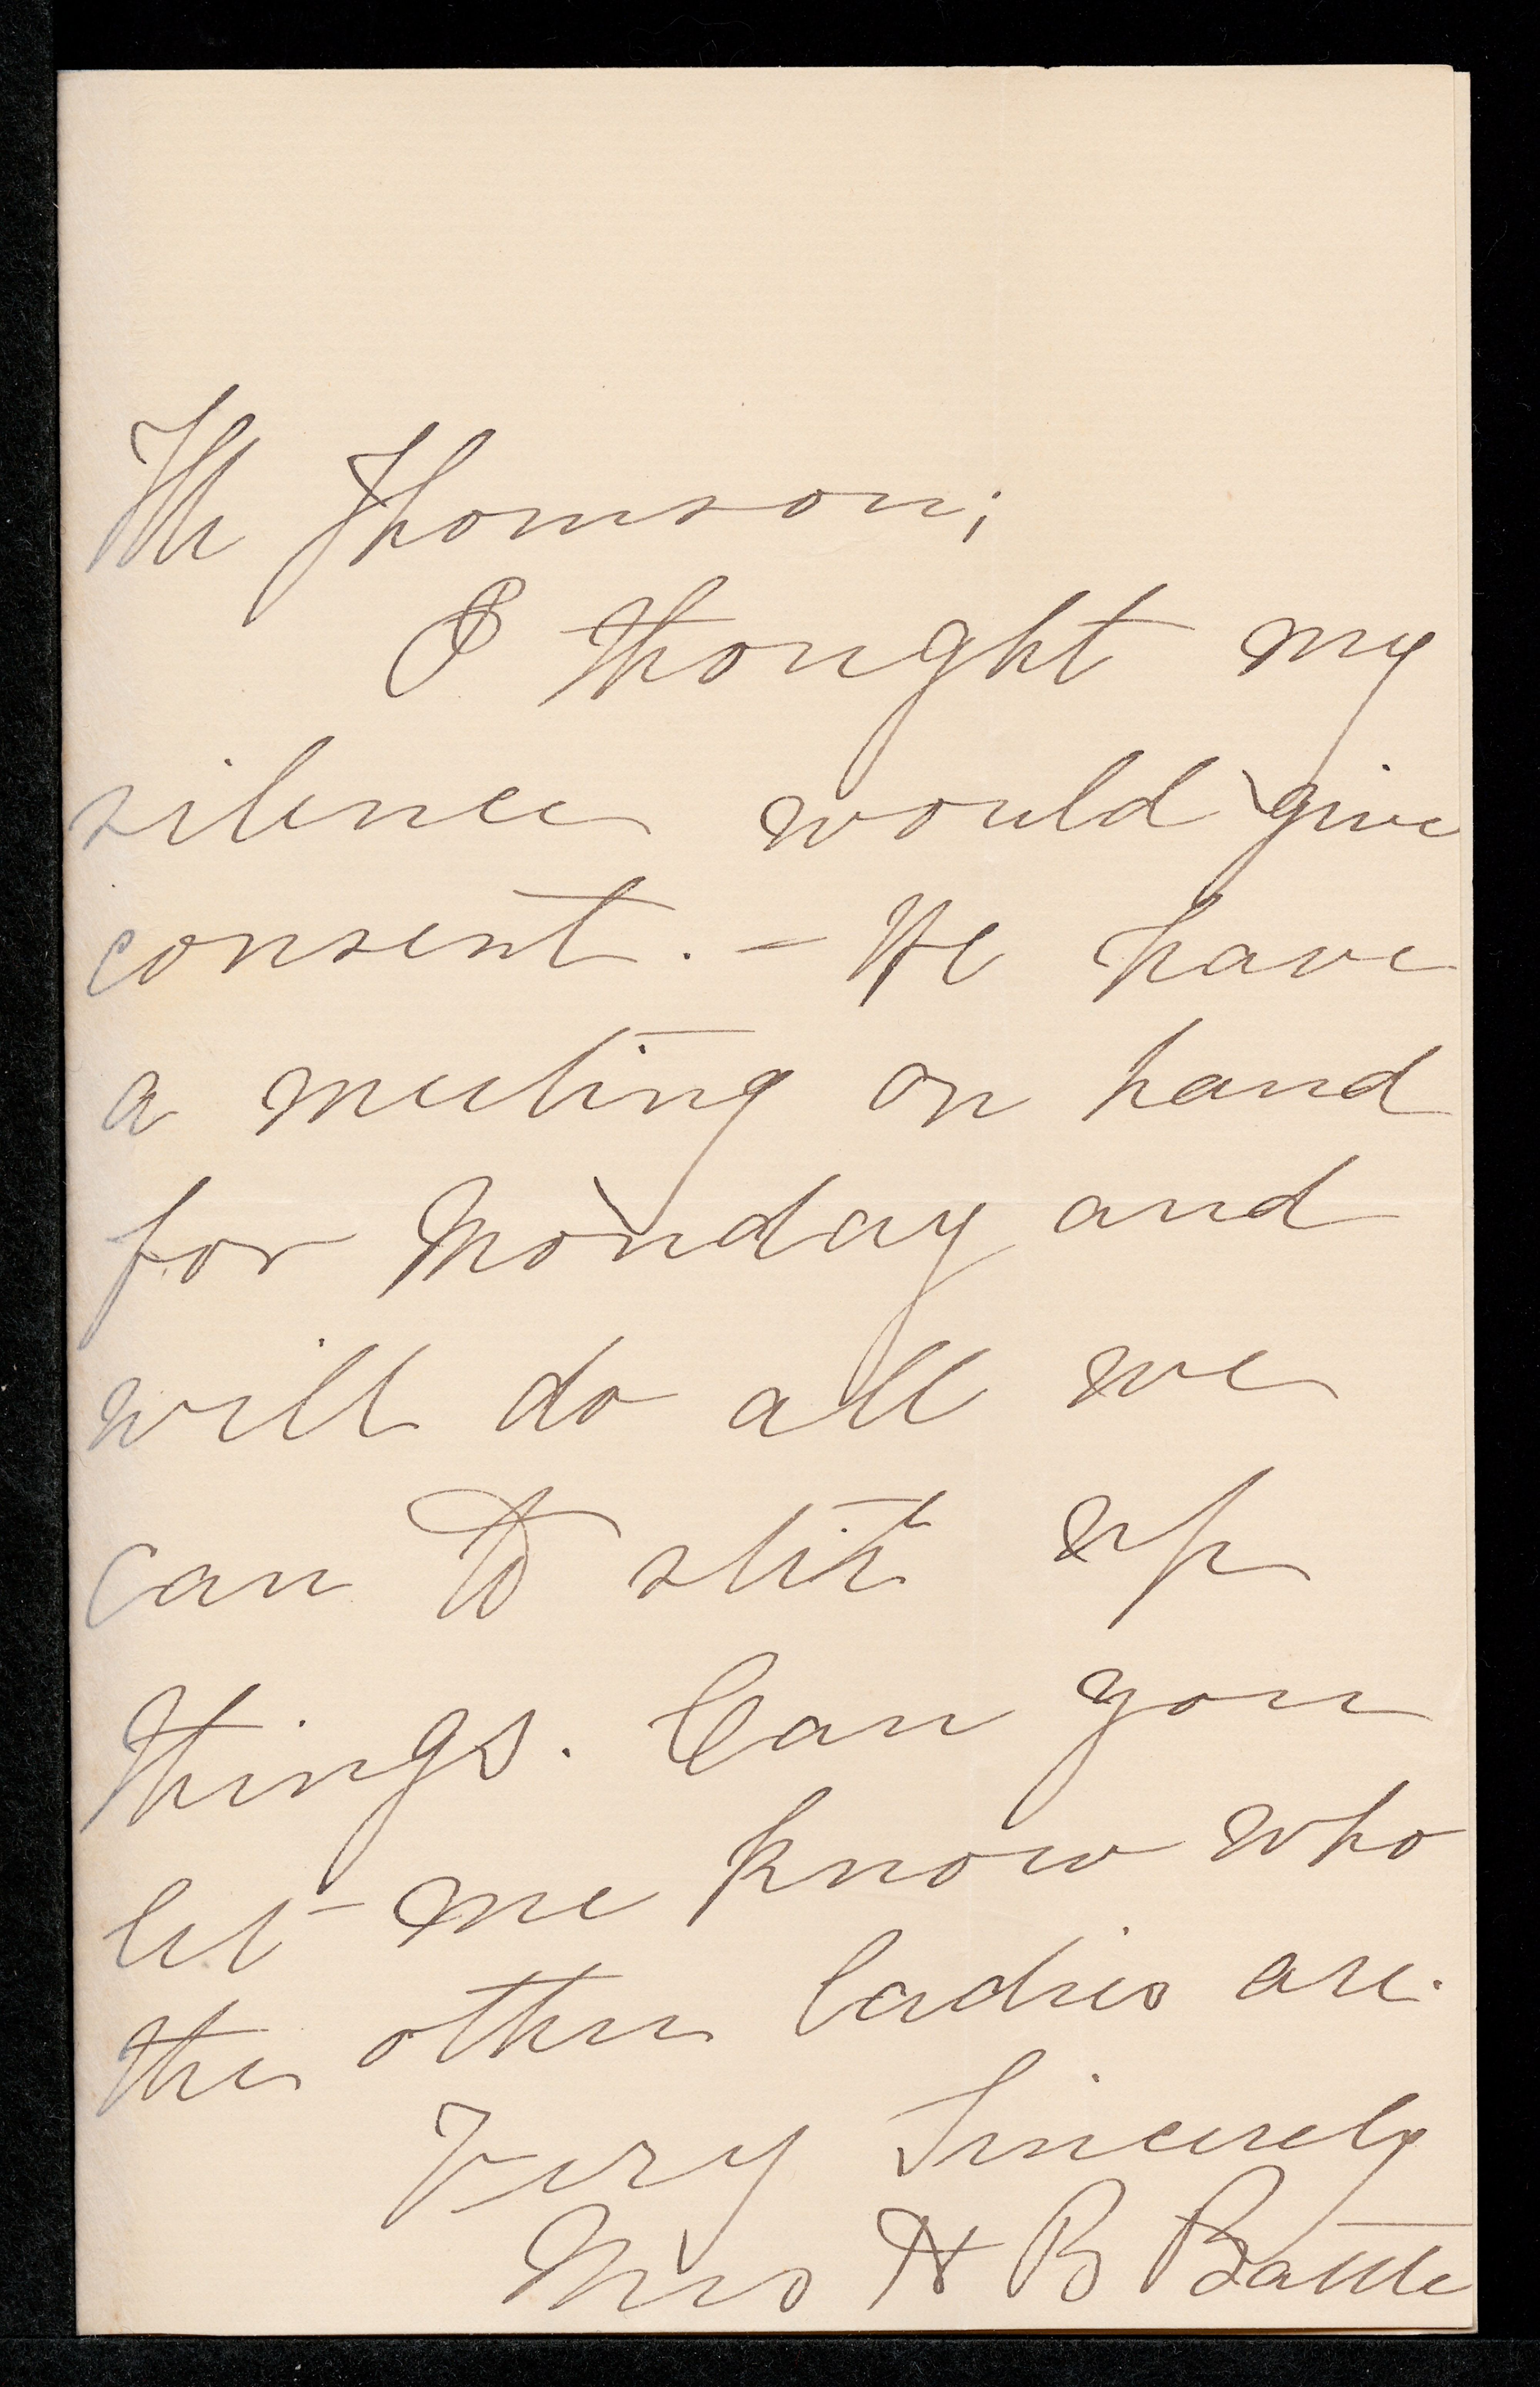 Mr Thomson;
I thought my
silence would give
consent. - We have
a meeting on hand
for Monday and
will do all we
can to stir up
things. Can you
let me know who
the other ladies are.
Very Sincerely
Mrs H B Battle